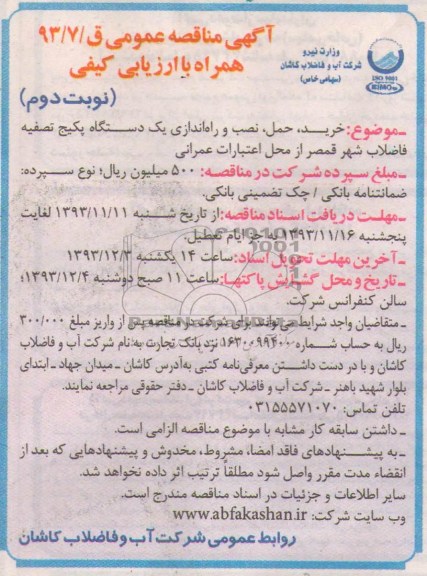 آگهی مناقصه عمومی ق/۹۳/۷
همراه با ارزیابی کیفی
وزارت نیرو
شرکت آب و فاضلاب کاشان
(سهامی خاص)
ISO 9001
(نوبت دوم)
ـ موضوع: خریـد، حمل، نصب و راه‌اندازی یک دستـگاه پکیج تصفیه
فاضلاب شهر قمصر از محل اعتبارات عمرانی
ـ مبلغ سپرده شرکت در مناقصه: ۵۰۰ میلیون ریال؛ نوع سپرده:
ضمانتنامه بانکی / چک تضمینی بانکی.
ـ مهلت دریافت اسناد مناقصه: از تاریخ شنبـه ۱۳۹۳/۱۱/۱۱ لغایت
پنجشنبه ۱۳۹۳/۱۱/۱۶ به جز ایام تعطیل.
ـ آخرین مهلت تحویل اسناد: ساعت ۱۴ یکشنبه ۱۳۹۳/۱۲/۳
ـ تاریخ و محل گشایش پاکتها: ساعت ۱۱ صبح دوشنبه ۱۳۹۳/۱۲/۴؛
سالن کنفرانس شرکت.
ـ متقاضیان واجد شرایط می‌توانند برای شرکت در مناقصه پس از واریز مبلغ ۳۰۰/۰۰۰
ریال به حساب شماره ۱۶۳۰۰۹۹۴۰۰ نزد بانک تجارت به نام شرکت آب و فاضلاب
کاشان و با در دست داشتـن معرفی‌نامه کتبی به‌آدرس کاشان ـ میدان جهاد ـ ابتدای
بلوار شهید باهنر ـ شرکت آب و فاضلاب کاشان ـ دفتر حقوقی مراجعه نمایند.
تلفن تماس: ۰۳۱۵۵۵۷۱۰۷۰
ـ داشتن سابقه کار مشابه با موضوع مناقصه الزامی است.
ـ به پیشـنهادهای فاقد امضا، مشروط، مخدوش و پیشنهادهایی که بعد از
انقضاء مدت مقرر واصل شود مطلقاً ترتیب اثر داده نخواهد شد.
سایر اطلاعات و جزئیات در اسناد مناقصه مندرج است.
وب سایت شرکت: www.abfakashan.ir
روابط عمومی شرکت آب و فاضلاب کاشان